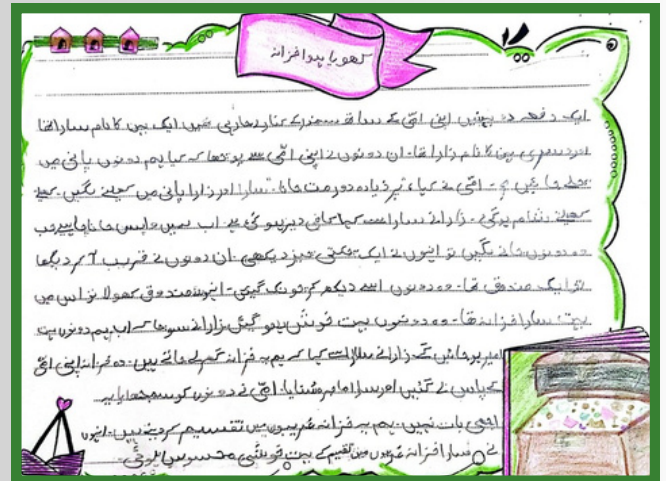 کھویا ہوا خزانہ
ایک دفعہ دو بہنیں اپنی امّی کے ساتھ سمندر کے کنارے جا رہی تھیں ایک بہن کا نام سارا تھا
اور دوسری بہن کا نام زارا تھا۔ ان دونوں نے اپنی امّی سے پوچھا کہ کیا ہم دونوں پانی میں
چلے جائیں؟۔ امّی نے کہا، "پر زیادہ دور مت جانا۔" سارا اور زارا پانی میں کھیلنے لگیں۔ کھیلتے
کھیلتے شام ہوگئی۔ زارا نے سارا سے کہا کافی دیر ہو گئی ہے۔ اب ہمیں واپس جانا چاہیے جب
وہ دونوں جانے لگیں تو انہوں نے ایک چمکتی چیز دیکھی۔ ان دونوں نے قریب آ کر دیکھا
تو ایک صندوق تھا۔ وہ دونوں اسے دیکھ کر چونک گییں۔ انہوں صندوق کھولا تو اس میں
بہت سارا خزانہ تھا۔ وہ دونوں بہت خوش ہو گیئں زارا نے سوچا کہ اب ہم دونوں بہت
امیر ہو جائیں گے۔ زارا نے سارا سے کہا کہ ہم یہ خزانہ گھر لے جاتے ہیں۔ وہ خزانہ اپنی امّی
کے پاس لے گئیں اور سارا ماجرہ سُنایا۔ امّی نے دونوں کو سمجھایا یہ
اچھی بات نہیں۔ ہم یہ خزانہ غریبوں میں تقسیم کر دیتے ہیں۔ انہوں
نے سارا خزانہ غریبوں میں تقسیم کر کے بہت خوشی محسوس ہوئی۔